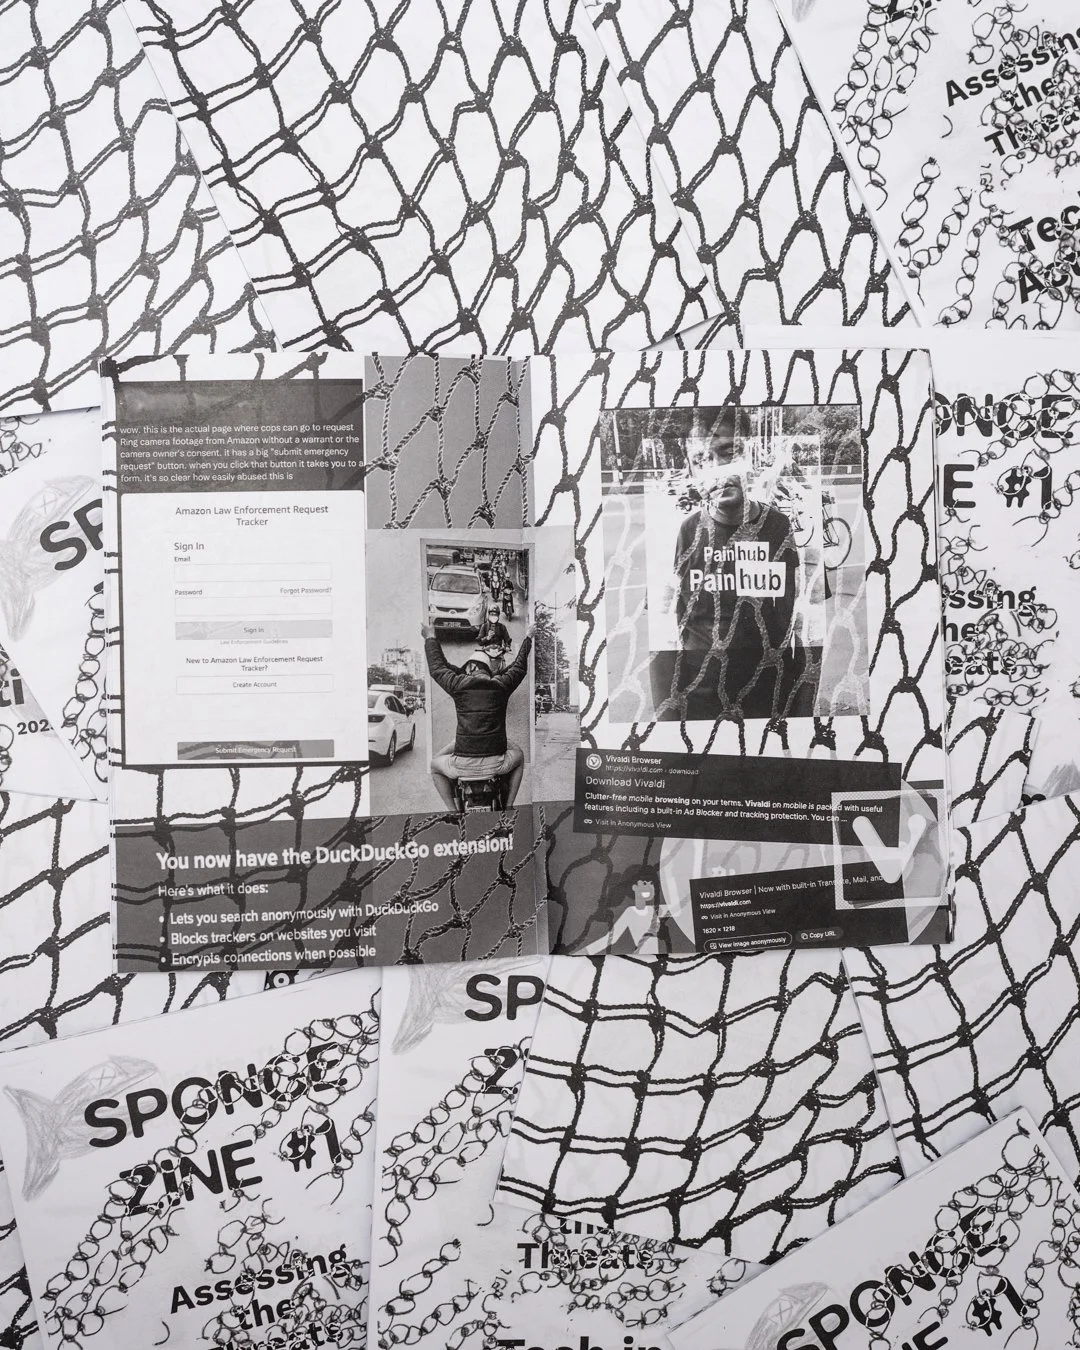 Assessing
the
Threats
Tec
wow. this is the actual page where cops can go to request
Ring camera footage from Amazon without a warrant or the
camera owner's consent. it has a big "submit emergency
request" button. when you click that button it takes you to a
form. it's so clear how easily abused this is
Amazon Law Enforcement Request
Tracker
Sign In
Email
Password Forgot Password?
Sign in
Law Enforcement Guidelines
New to Amazon Law Enforcement Request
Tracker?
Create Account
Submit Emergency Request
You now have the DuckDuckGo extension!
Here's what it does:
• Lets you search anonymously with DuckDuckGo
• Blocks trackers on websites you visit
• Encrypts connections when possible
Pain hub
Pain hub
Vivaldi Browser
https://vivaldi.com › download
Download Vivaldi
Clutter-free mobile browsing on your terms. Vivaldi on mobile is packed with useful
features including a built-in Ad Blocker and tracking protection. You can ...
Visit in Anonymous View
Vivaldi Browser | Now with built-in Translate, Mail, and
https://vivaldi.com
Visit in Anonymous View
1620 × 1218
View image anonymously Copy URL
ONGE
E #1
ssing
he
eats
SP
ti
202
SPONGE
ZiNE #1
Assessing
the
SP
Z
the
Threats
Tech in
SPONGE
NE #1